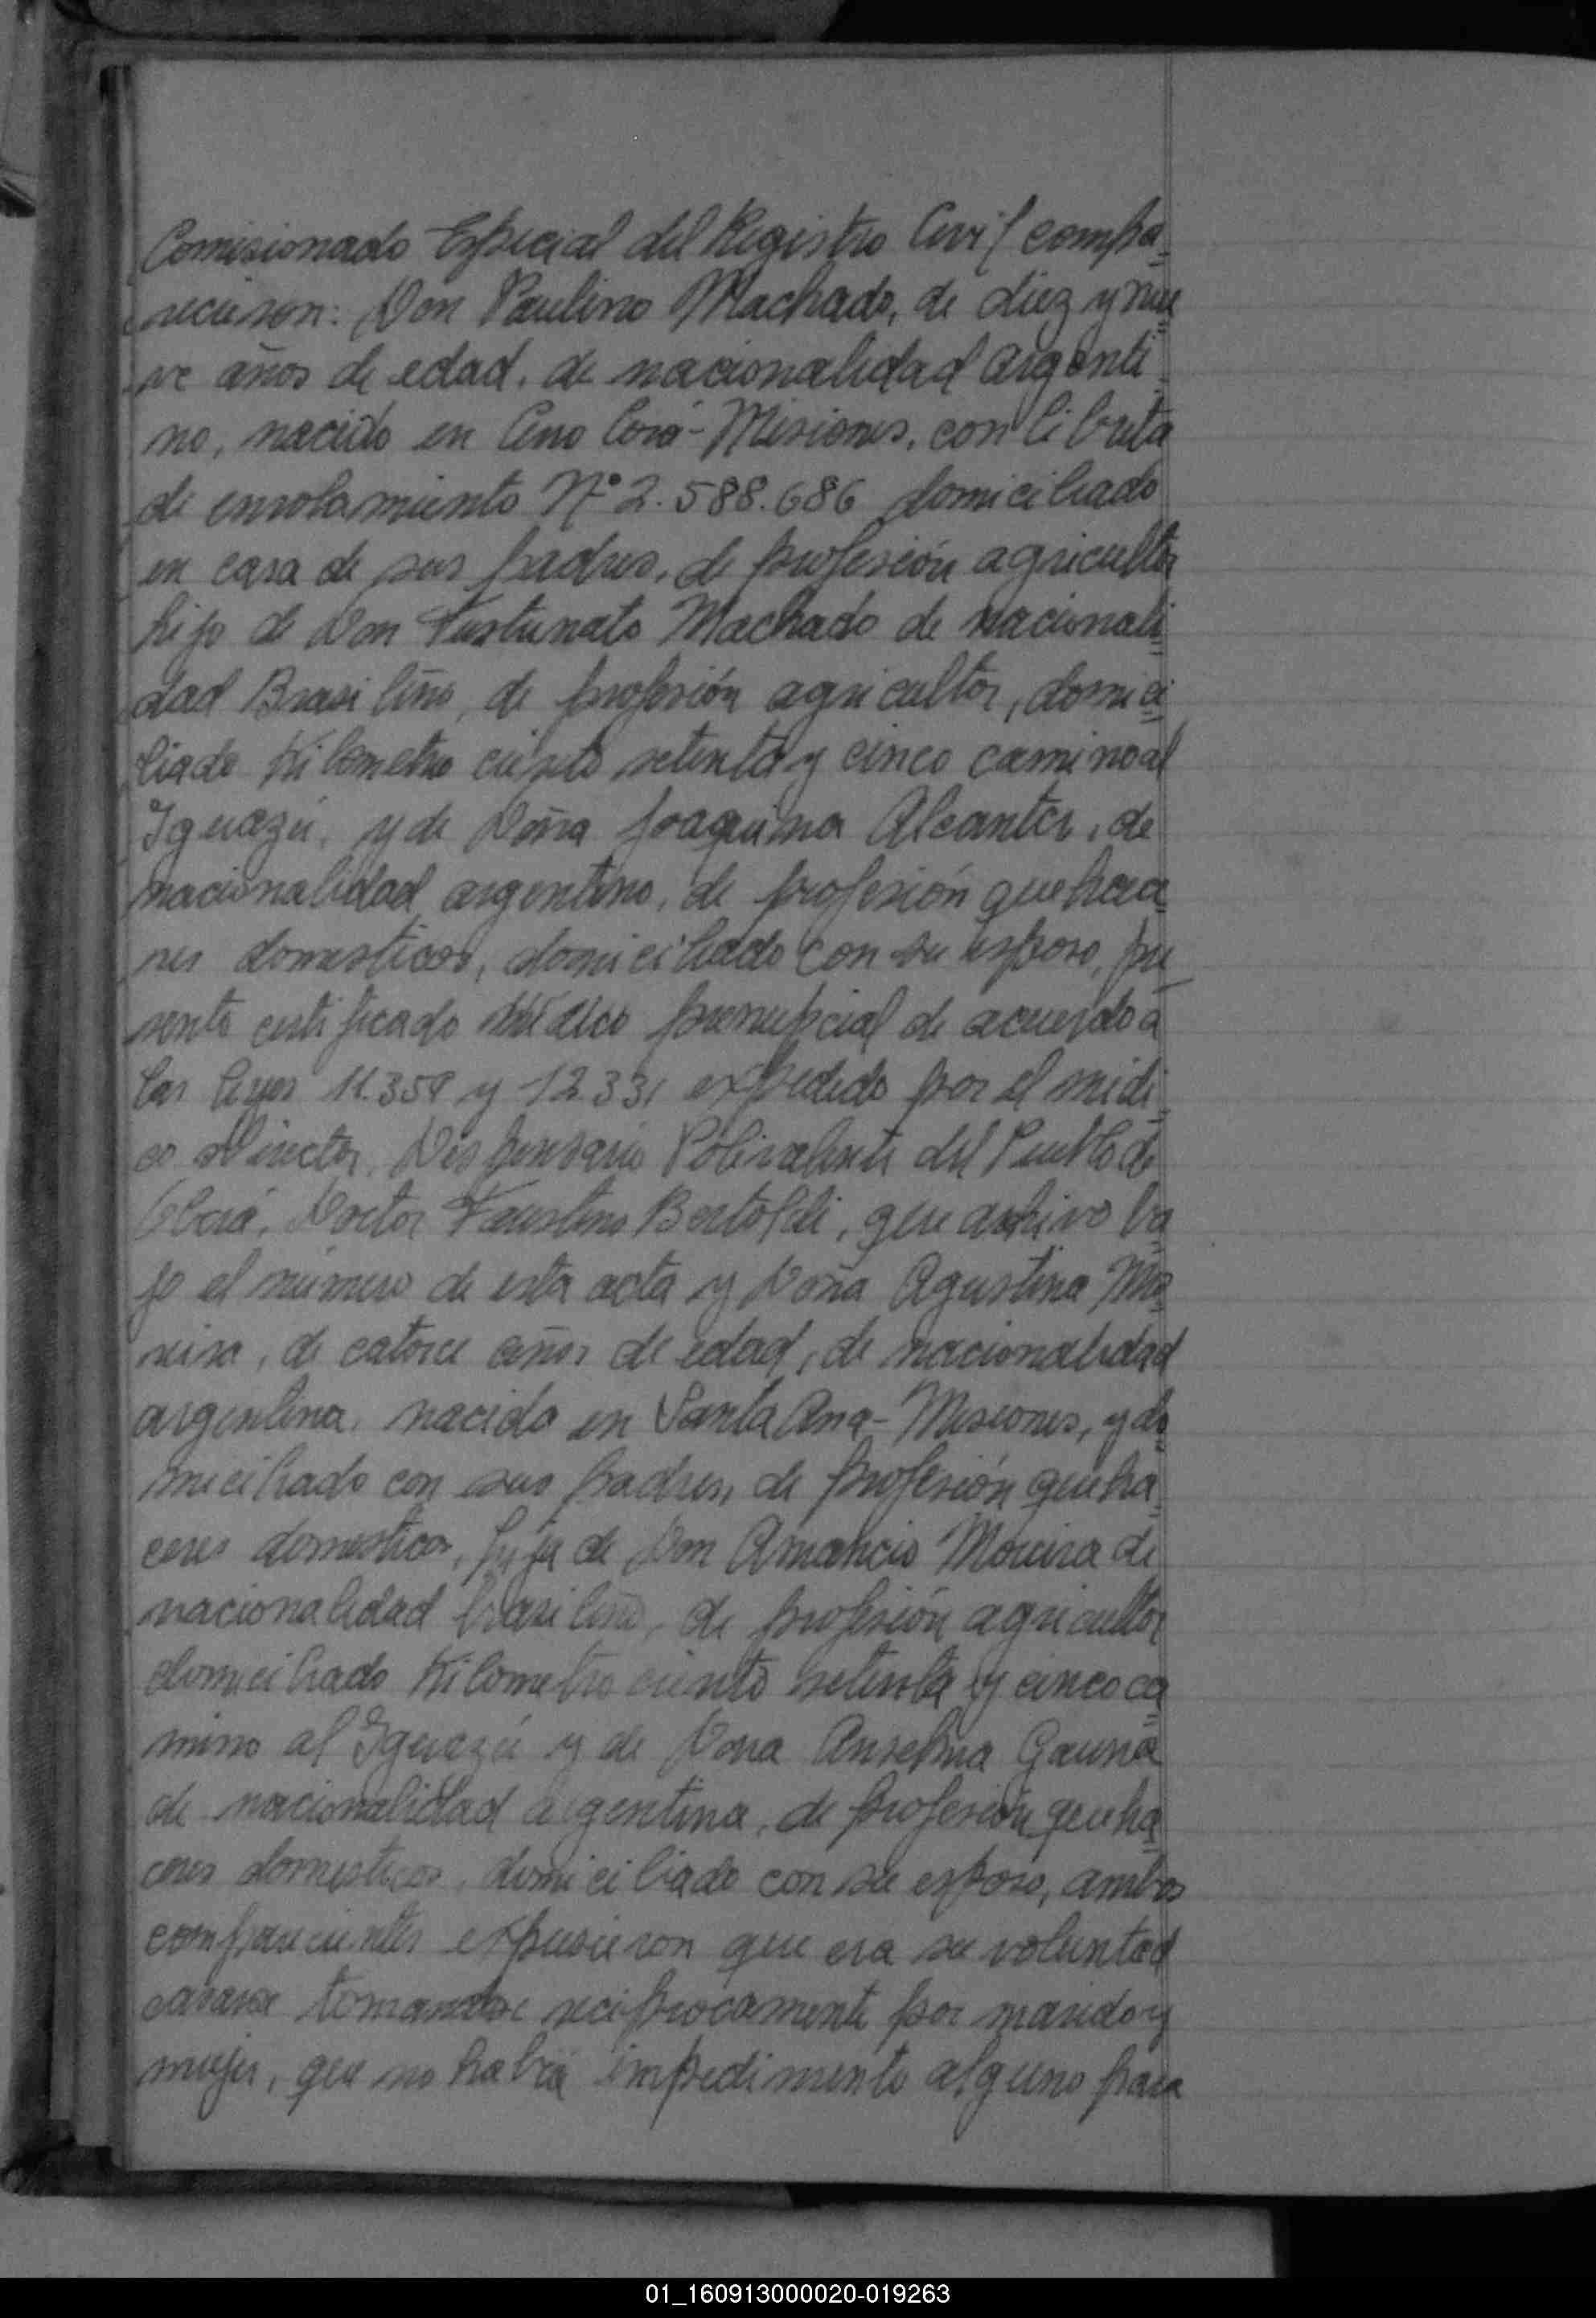 Comisionado Especial del Registro Civil compa-
recieron: Don Paulino Machado, de diez y nue
ve años de edad, de nacionalidad argenti-
no, nacido en Cerro Corá-Misiones, con libreta
de enrolamiento Nº 2.588.686 domiciliado
en casa de sus padres, de profesión agricultor
hijo de Don Furtunato Machado de nacionali
dad Brasileño, de profesión agricultor, domici
liado Kilometro ciento setenta y cinco camino al
Iguazú, y de Doña Joaquina Alcanter, de
nacionalidad argentino, de profesión quehace
res domesticos, domiciliado con su esposo, pre
sento certificado médico prenupcial de acuerdo a
las leyes 11.359 y 12331 expedido por el médi
co Director, Dispensario Polivalente del Pueblo de
Oberá, Doctor Faustino Bertoldi, que archivo ba
jo el número de esta acta y Doña Agustina Mo
reira, de catorce años de edad, de nacionalidad
argentina, nacida en Santa Ana-Misiones, y do
miciliado con sus padres, de profesión queha
ceres domesticos, hija de Don Amancio Moreira de
nacionalidad brasileño, de profesión agricultor
domiciliado Kilometro ciento setenta y cinco ca
mino al Iguazú y de Dona Anselma Gauna
de nacionalidad argentina, de profesión queha
ceres domesticos, domiciliado con su esposo, ambos
comparecientes expusieron que era su voluntad
casarse tomandose reciprocamente por marido y
mujer, que no había impedimento alguno para
01_160913000020-019263